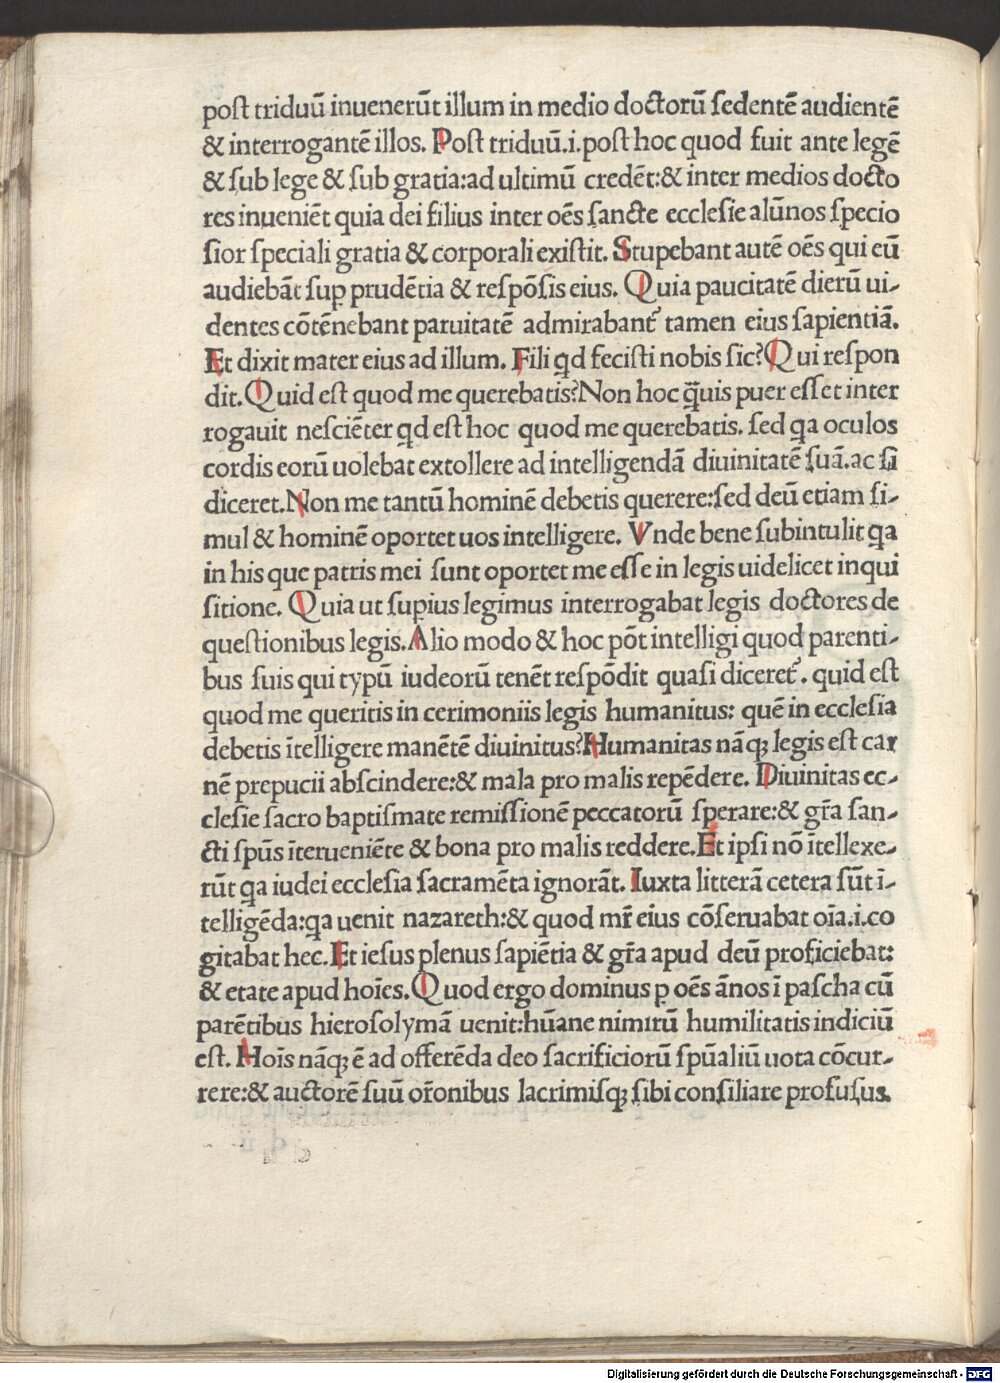 poſt triduū inuenerūt illum in medio doctorū ſedentē audientē
& interrogantē illos. Poſt triduū.i.poſt hoc quod fuit ante legē
& ſub lege & ſub gratia:ad ultimū credēt:& inter medios docto
res inueniēt quia dei filius inter oēs ſancte eccleſie alūnos ſpecio
ſior ſpeciali gratia & corporali exiſtit. Stupebant autē oēs qui eū
audiebāt ſuꝑ prudētia & reſpōſis eius. Quia paucitatē dierū ui-
dentes cōtēnebant paruitatē admirabant᷑ tamen eius ſapientiā.
Et dixit mater eius ad illum. Fili qd feciſti nobis ſic?Qui reſpon
dit.Quid eſt quod me querebatis?Non hoc q̄uis puer eſſet inter
rogauit neſciēter qd eſt hoc quod me querebatis. ſed qa oculos
cordis eorū uolebat extollere ad intelligendā diuinitatē ſuā.ac ſi
diceret.Non me tantū hominē debetis querere:ſed deū etiam ſi-
mul & hominē oportet uos intelligere. Vnde bene ſubintulit qa
in his que patris mei ſunt oportet me eſſe in legis uidelicet inqui
ſitione. Quia ut ſupius legimus interrogabat legis doctores de
queſtionibus legis.Alio modo & hoc pōt intelligi quod parenti-
bus ſuis qui typū iudeorū tenēt reſpōdit quaſi diceret᷑. quid eſt
quod me queritis in cerimoniis legis humanitus: quē in eccleſia
debetis ītelligere manētē diuinitus?Humanitas nāqꝫ legis eſt car
nē prepucii abſcindere:& mala pro malis repēdere. Diuinitas ec-
cleſie ſacro baptiſmate remiſſionē peccatorū ſperare:& gr̄a ſan-
cti ſpūs īterueniēte & bona pro malis reddere.Et ipſi nō ītellexe-
rūt qa iudei eccleſia ſacramēta ignorāt. Iuxta litterā cetera ſūt ī-
telligēda:qa uenit nazareth:& quod mr̄ eius cōſeruabat oīa.i.co
gitabat hec.Et ieſus plenus ſapiētia & gr̄a apud deū proficiebat:
& etate apud hoīes.Quod ergo dominus ꝑ oēs ānos ī paſcha cū
parētibus hieroſolymā uenit:hūane nimirū humilitatis indiciū
eſt. Hoīs nāqꝫ ē ad offerēda deo ſacrificiorū ſpūaliū uota cōcur-
rere:& auctorē ſuū or̄onibus lacrimiſqꝫ ſibi conſiliare profuſus.
Digitalisierung gefördert durch die Deutsche Forschungsgemeinschaft - DFG